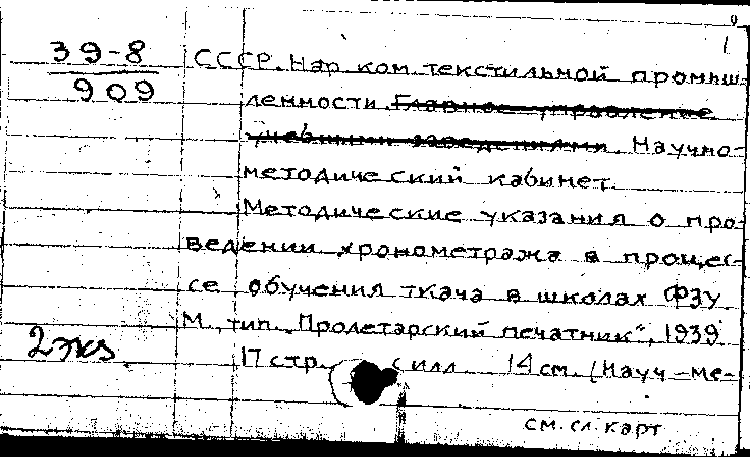 1
39-8
909
СССР. Нар. ком. текстильной промыш-
ленности. Главное управление
учебными заведениями. Научно-
методический кабинет.
Методические указания о про-
ведении хронометража в процес-
се обучения ткача в школах ФЗУ
М., тип. "Пролетарский печатник", 1939
17 стр. с илл. 14 см. (Науч.-ме-
2 экз.
см. сл. карт